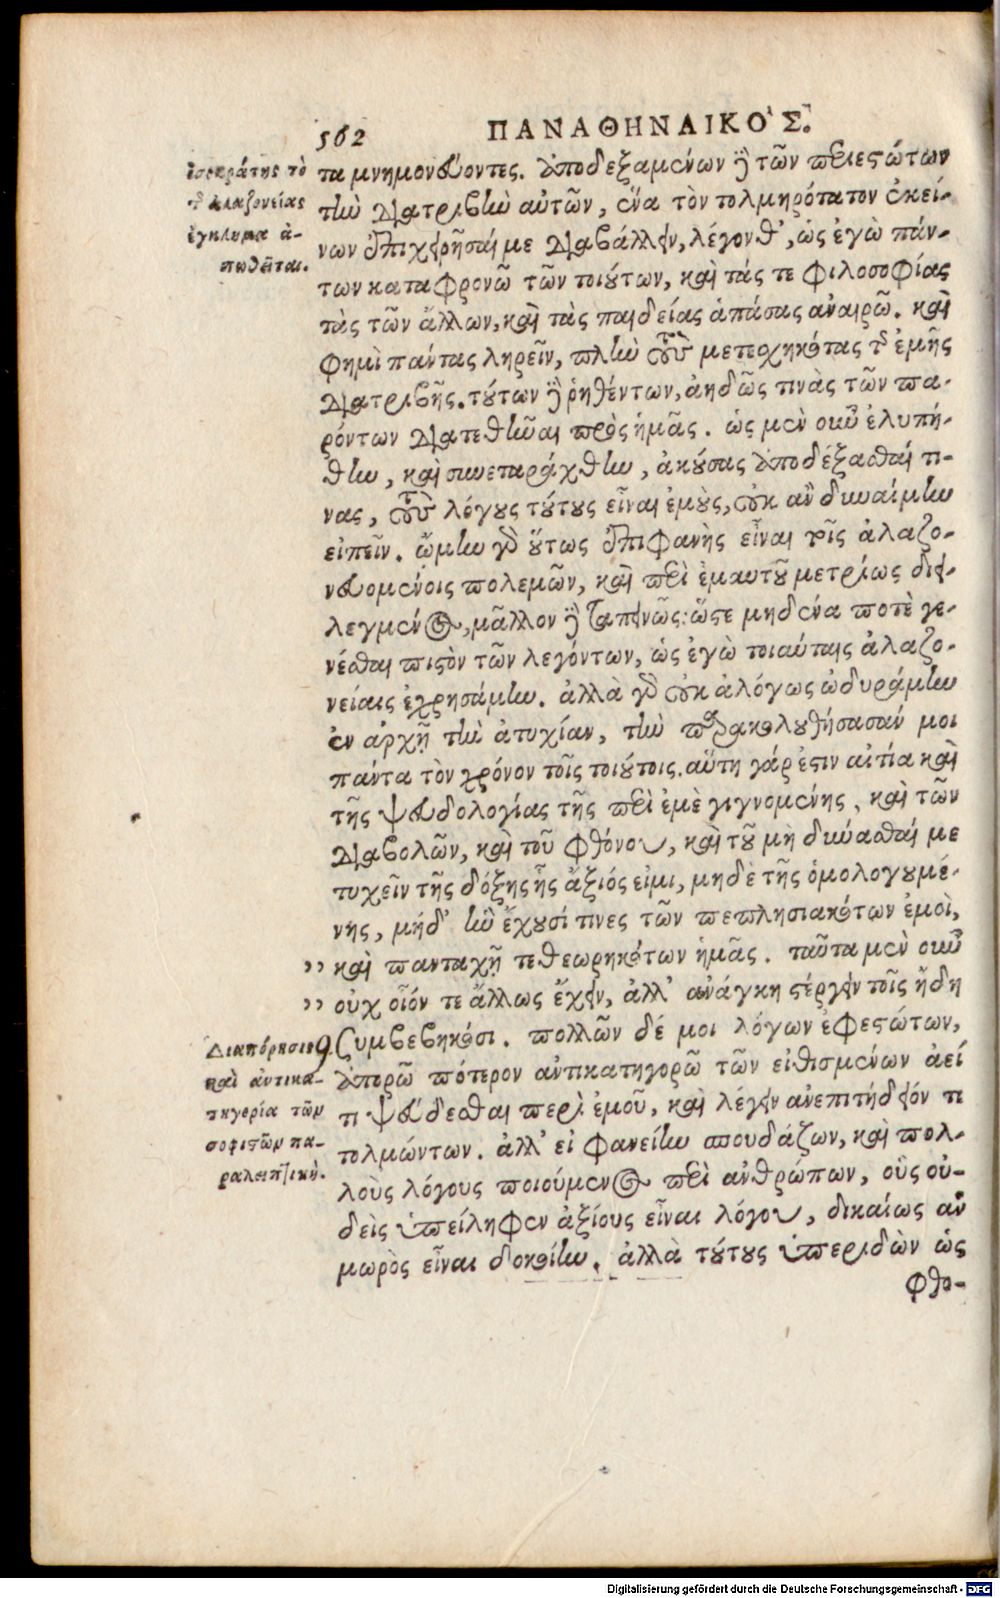 562 ΠΑΝΑΘΗΝΑΙΚΟ'Σ.
ἰσοκράτης τὸ
τ͂ ἀλαζονείας
ἔγκλημα ἀ-
πωθεῖται.
τα μνημονεύοντες. ἀποδεξαμένων δὲ τῶν περιεστώτων
τὴν διατριβὴν αὐτῶν, ἕνα τὸν τολμηρότατον ἐκεί-
νων ἐπιχειρῆσαί με διαβάλλειν, λέγονθ', ὡς ἐγὼ πάν-
των καταφρονῶ τῶν τοιούτων, καὶ τάς τε φιλοσοφίας
τὰς τῶν ἄλλων, καὶ τὰς παιδείας ἁπάσας ἀναιρῶ. καὶ
φημὶ πάντας ληρεῖν, πλὴν τοὺς μετεσχηκότας τ͂ ἐμῆς
διατριβῆς. τούτων δὲ ῥηθέντων, ἀηδῶς τινὰς τῶν πα-
ρόντων διατεθῆναι πρὸς ἡμᾶς. ὡς μὲν οὖν ἐλυπή-
θην, καὶ συνεταράχθην, ἀκούσας ἀποδέξασθαί τι-
νας, τοὺς λόγους τούτους εἶναι ἐμοὺς, οὐκ ἂν δυναίμην
εἰπεῖν. ᾤμην γὰρ οὕτως ἐπιφανὴς εἶναι τοῖς ἀλαζο-
νευομένοις πολεμῶν, καὶ περὶ ἐμαυτοῦ μετρίως διει-
λεγμένος, μᾶλλον δὲ ταπεινῶς: ὥστε μηδένα ποτὲ γε-
νέσθαι πιστὸν τῶν λεγόντων, ὡς ἐγὼ τοιαύταις ἀλαζο-
νείαις ἐχρησάμην. ἀλλὰ γὰρ οὐκ ἀλόγως ὠδυράμην
ἐν ἀρχῇ τὴν ἀτυχίαν, τὴν παρακολουθήσασάν μοι
πάντα τὸν χρόνον τοῖς τοιούτοις. αὕτη γάρ ἐστιν αἰτία καὶ
τῆς ψευδολογίας τῆς περὶ ἐμὲ γιγνομένης, καὶ τῶν
διαβολῶν, καὶ τοῦ φθόνου, καὶ τοῦ μὴ δύνασθαί με
τυχεῖν τῆς δόξης ἧς ἄξιός εἰμι, μηδὲ τῆς ὁμολογουμέ-
νης, μήδ' ἣν ἔχουσί τινες τῶν πεπλησιακότων ἐμοὶ,
,, καὶ πανταχῇ τεθεωρηκότων ἡμᾶς. ταῦτα μὲν οὖν
,, οὐχ οἷόν τε ἄλλως ἔχειν, ἀλλ' ἀνάγκη στέργειν τοῖς ἤδη
συμβεβηκόσι. πολλῶν δέ μοι λόγων ἐφεστώτων,
Διαπόρησις
καὶ ἀντικα-
τηγορία τῶν
σοφιστῶν πα-
ραλειπτική.
ἀπορῶ πότερον ἀντικατηγορῶ τῶν εἰθισμένων ἀεί
τι ψεύδεσθαι περὶ ἐμοῦ, καὶ λέγειν ἀνεπιτήδειόν τι
τολμώντων. ἀλλ' εἰ φανείην σπουδάζων, καὶ πολ-
λοὺς λόγους ποιούμενος περὶ ἀνθρώπων, οὓς οὐ-
δεὶς ὑπείληφεν ἀξίους εἶναι λόγου, δικαίως ἂν
μωρὸς εἶναι δοκοίην. ἀλλὰ τούτους ὑπεριδὼν ὡς
φθο-
Digitalisierung gefördert durch die Deutsche Forschungsgemeinschaft - DFG